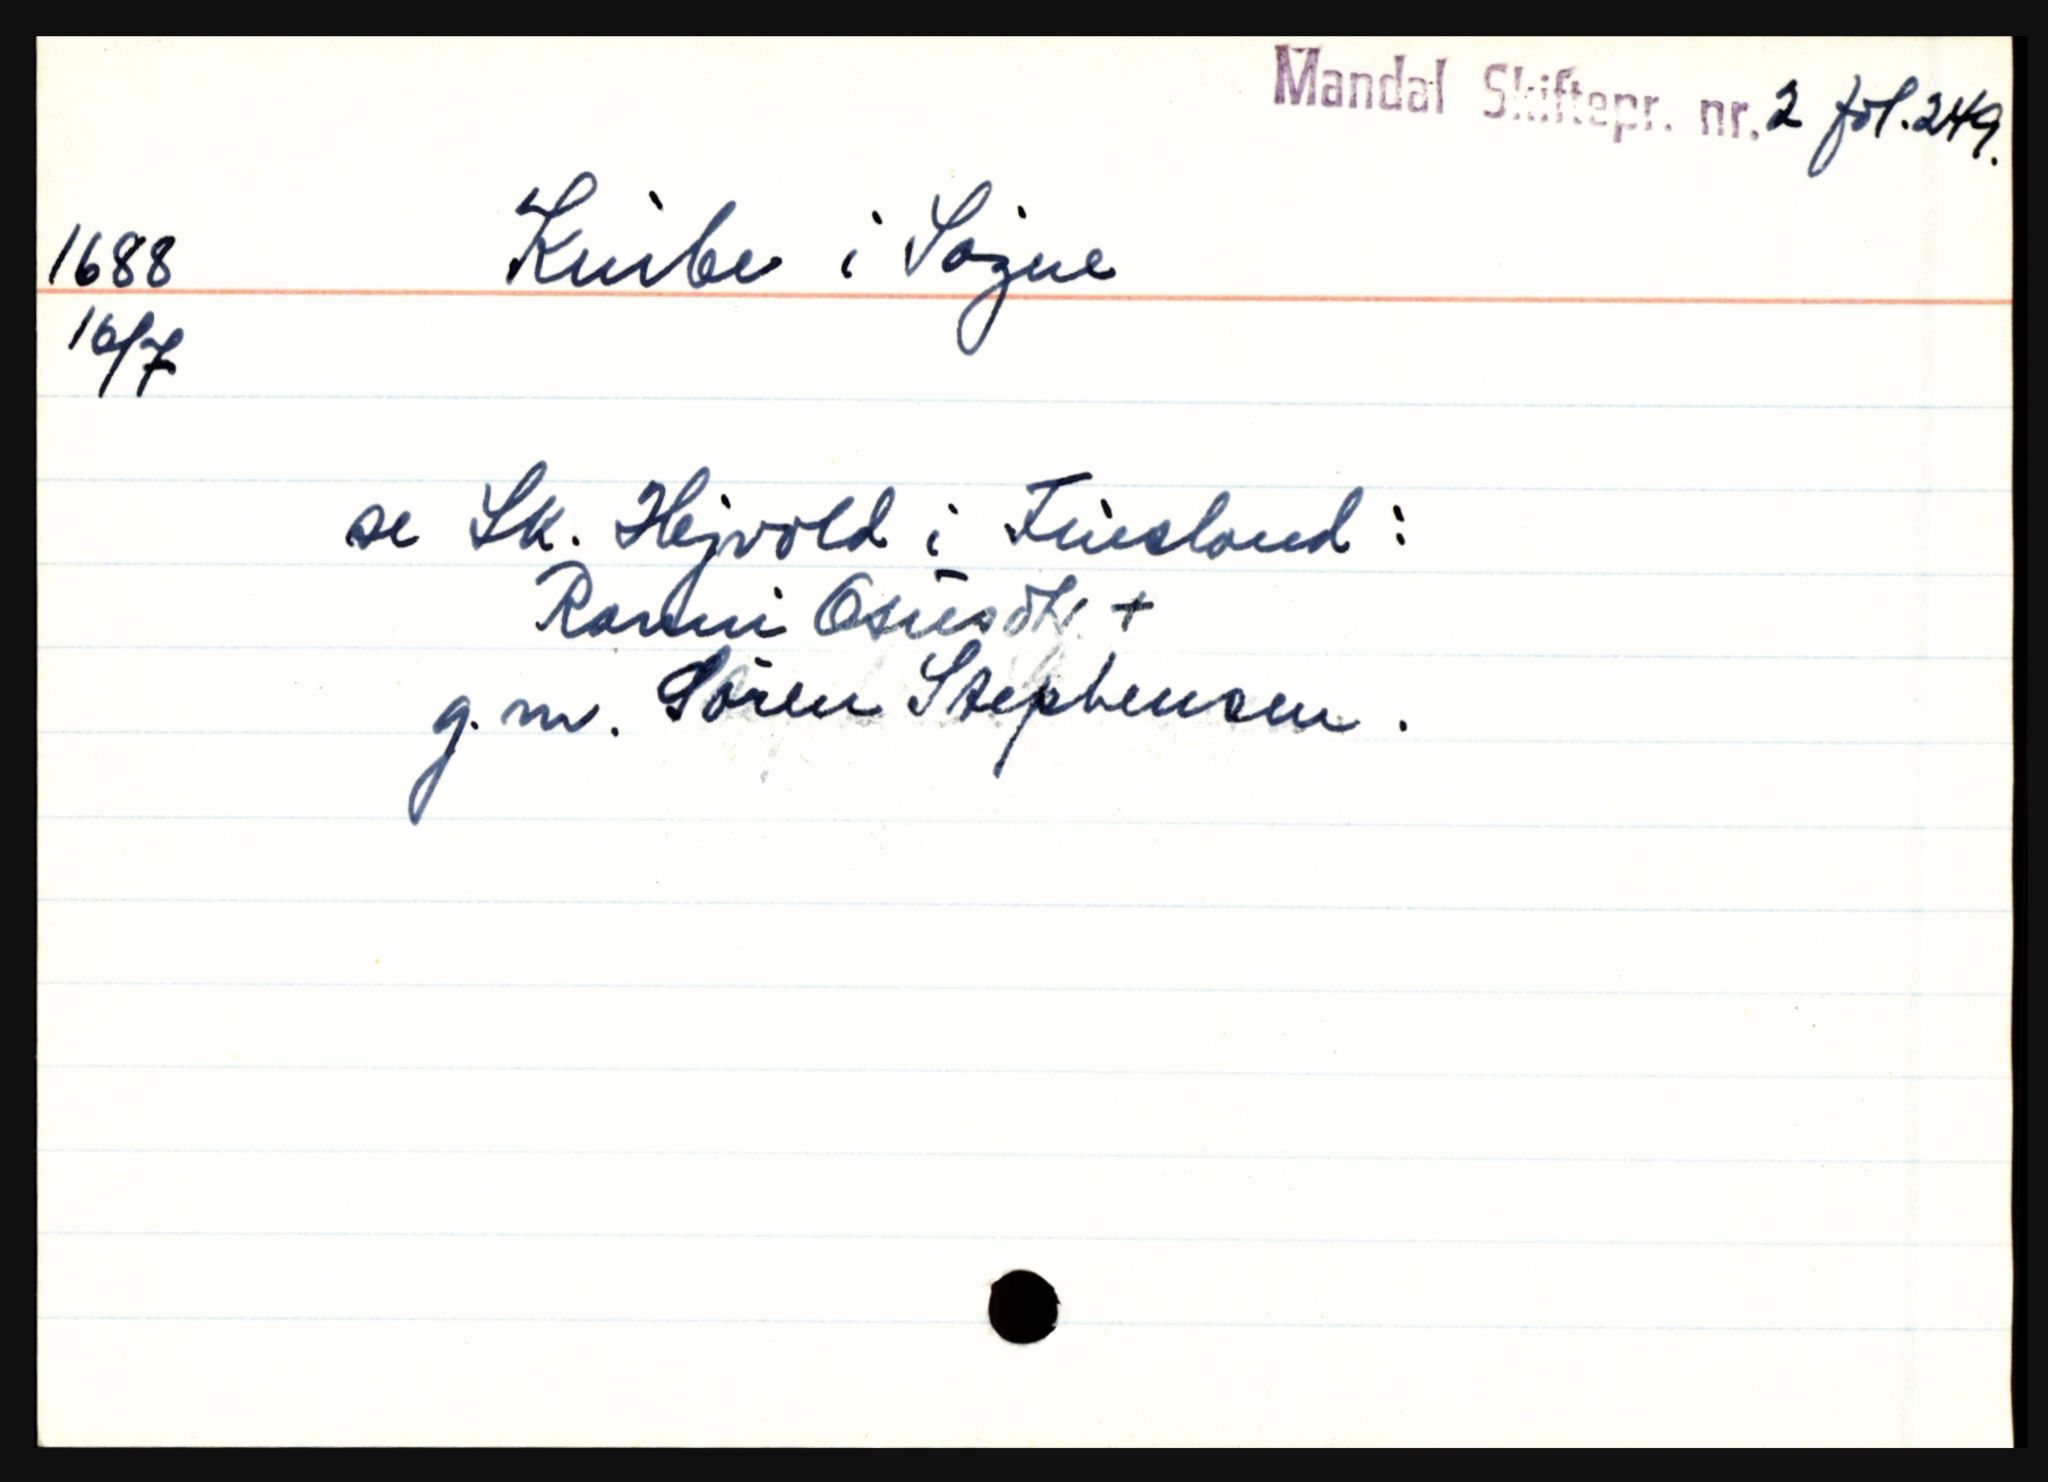 Mandal Skiftepr. nr. 2 fol. 249.
1688 Knibe i Søgne
16/7
se Sk. Hejvold i Finsland:
Ranni Osmsdtr. +
g. m. Sören Stephensen.